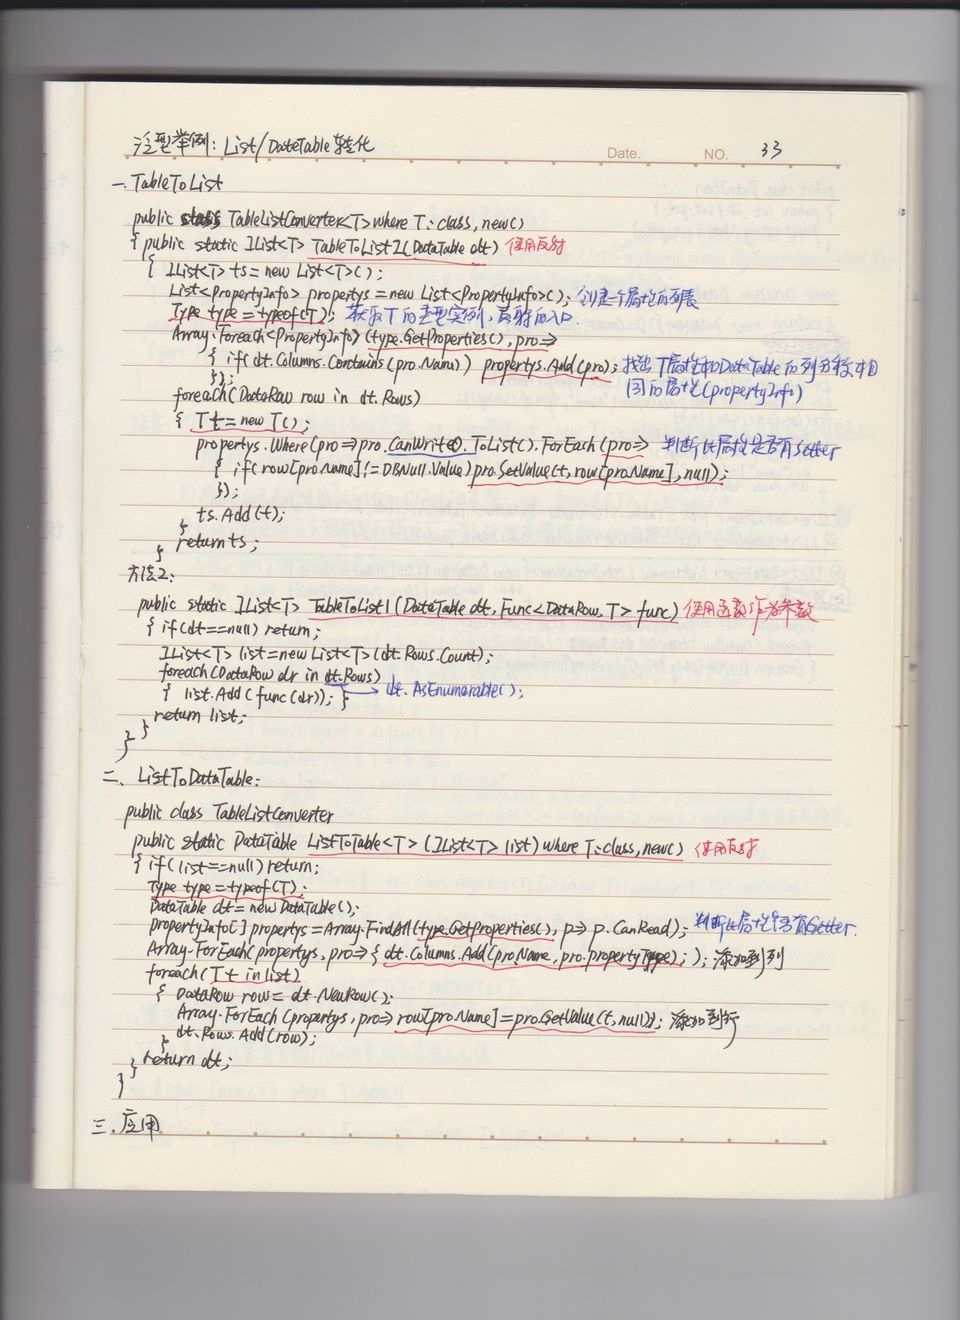 泛型举例: List/DateTable转化 Date. NO. 33
一. TableToList
public class TableListConverter<T> where T: class, new()
{ public static IList<T> TableToList2(DataTable dt) 使用反射
{ IList<T> ts = new List<T>();
List<PropertyInfo> propertys = new List<PropertyInfo>(); 创建一个属性的列表
Type type = typeof(T); 获取T的类型实例, 反射的入口
Array.Foreach<PropertyInfo>(type.GetProperties(), pro=>
{ if(dt.Columns.Contains(pro.Name)) propertys.Add(pro); 找出T属性和DataTable的列名称相
}); 同的属性(propertyInfo)
foreach(DataRow row in dt.Rows)
{ T t = new T();
propertys.Where(pro=>pro.CanWrite).ToList().ForEach(pro=> 判断此属性是否有Setter
{ if(row[pro.Name]!=DBNull.Value) pro.SetValue(t, row[pro.Name], null);
});
ts.Add(t);
}
return ts;
}
方法2:
public static IList<T> TableToList1(DateTable dt, Func<DataRow, T> func) 使用函数作为参数
{ if(dt==null) return;
IList<T> list = new List<T>(dt.Rows.Count);
foreach(DataRow dr in dt.Rows)
{ list.Add(func(dr)); } dt.AsEnumerable();
return list;
}
}
二. ListToDataTable:
public class TableListConverter
public static DataTable ListToTable<T>(IList<T> list) where T: class, new() 使用反射
{ if(list==null) return;
Type type = typeof(T);
DataTable dt = new DataTable();
PropertyInfo[] propertys = Array.FindAll(type.GetProperties(), p=> p.CanRead); 判断此属性是否有Getter.
Array.ForEach(propertys, pro=>{ dt.Columns.Add(pro.Name, pro.propertyType); }); 添加到列
foreach(T t in list)
{ DataRow row = dt.NewRow();
Array.ForEach(propertys, pro=> row[pro.Name]=pro.GetValue(t, null)); 添加到行
dt.Rows.Add(row);
}
return dt;
}
}
三. 应用